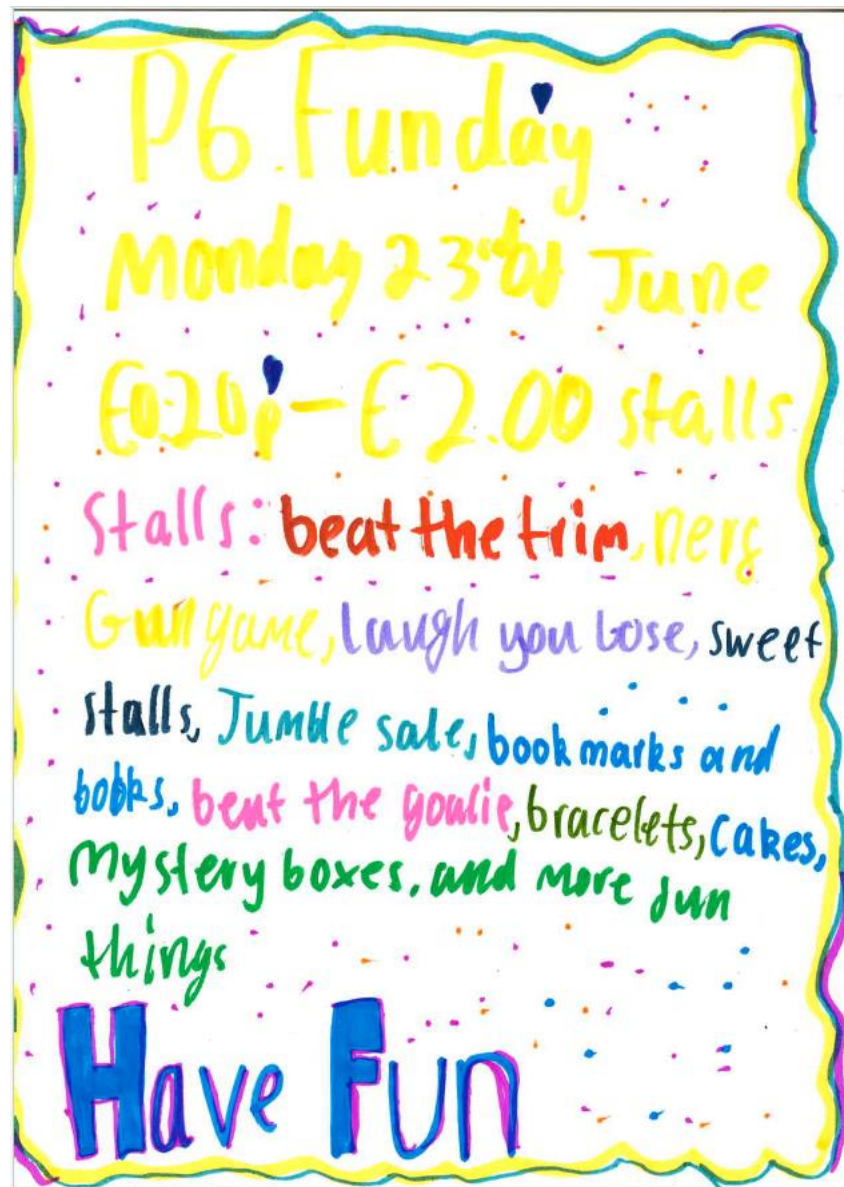 P6 Funday
Monday 23rd of June
£0.20p - £2.00 stalls
Stalls: beat the trim, nerf
Gun game, laugh you lose, sweet
stalls, Jumble sale, book marks and
books, beat the goalie, bracelets, cakes,
mystery boxes, and more fun
things
Have Fun